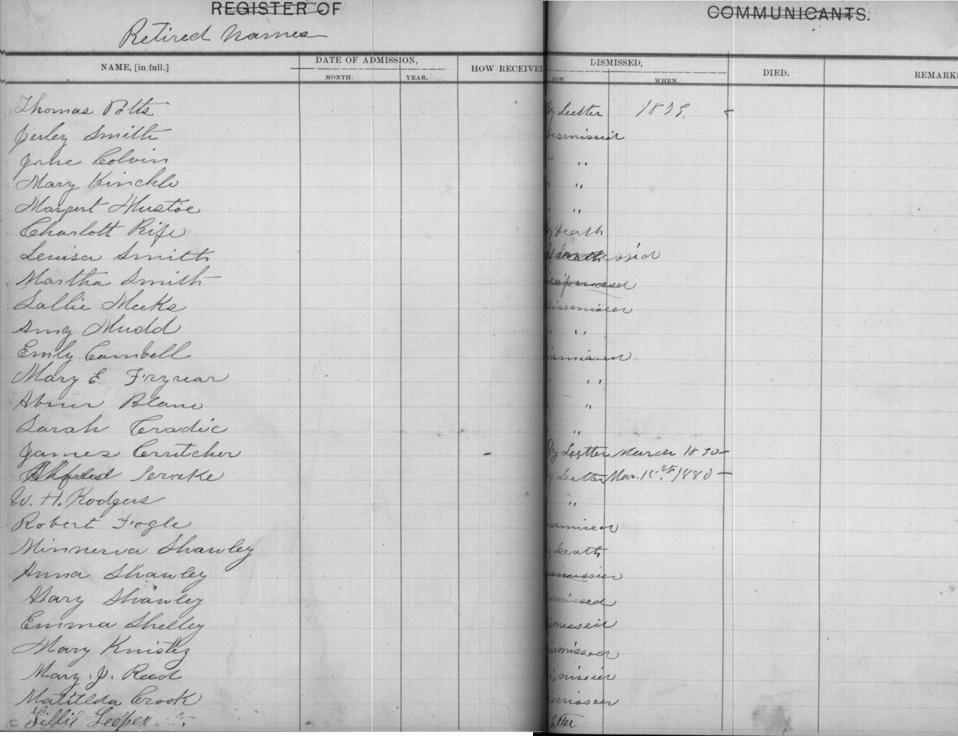 REGISTER OF COMMUNICANTS.
Retired Names
NAME, [in full.] DATE OF ADMISSION, HOW RECEIVED DISMISSED, DIED. REMARK
MONTH. YEAR. HOW WHEN.
Thomas Potts By Letter
Smith Dismissed
Jane Colvin " "
Mary Kinchlo " "
Margert Mustoe " "
Charlott Rife By Death
Leuisa Smith
Martha Smith
Sallie Meeks Dismissed
Amy Mudd " "
Emily Cambell Dismissed
Mary E Fryrear " "
Abner Blane "
Sarah Cradic "
James Crutcher - By Letter March
By Letter Mar. 15th 1880 -
W. H. Rodgers "
Robert Fogle Dismissed
Minnerva Shawley By Death
Anna Shawley Dismissed
Mary Shawley Dismissed
Emma Shelley Dismissed
Mary Dismissed
Mary. J. Reed Dismissed
Matilda Crook Dismissed
Lillie Leeper Letter